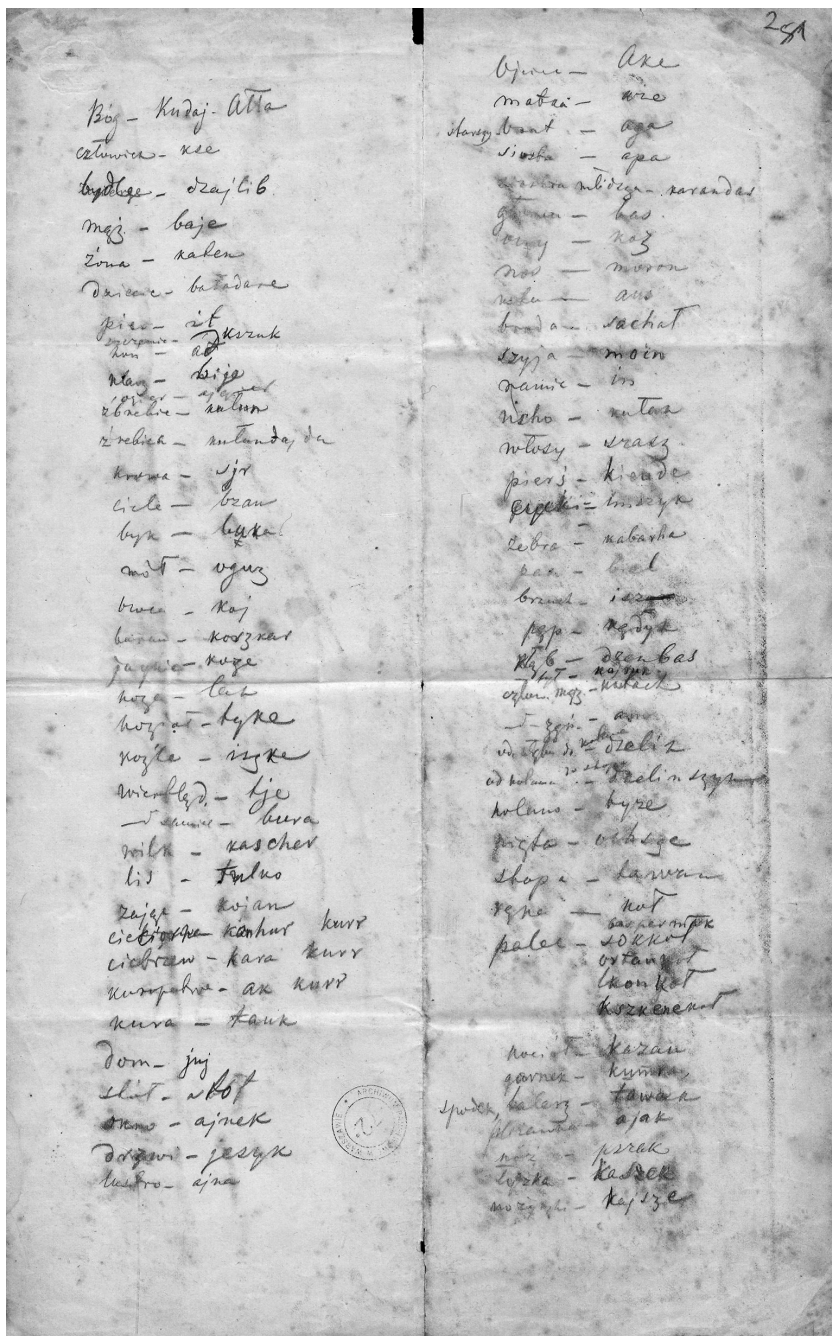 Bóg - Kudaj - Ałła
człowiek - kse
bydlę - dzajlib
mąż - baje
żona - katen
dziecie - baładare
pies - it
szczenie - kszuk
koń -
klacz -
źrebie - kułun
źrebica - kułundaj da
krowa - sjr
ciele - bzau
byk - buka
wół - oguz
owca - koj
baran - koszkar
jagnie - koze
koza - lak
kozioł - tyke
koźle - iszke
wierbłąd - tje
bura
wilk - kascher
lis - tulko
zając - kojan
cieciorka - kanhur kurr
cietrzew - kara kurr
kuropatwa - ak kurr
kura - tauk
dom - juj
stół - stoł
okno - ajnek
drzwi - jesyk
lustro - ajna
281
Ojciec - Ake
matka - sze
starszy brat - aga
siostra - apa
młodsza - karandas
głowa - bas
oczy - koz
nos - moron
usta - aus
broda - sachał
szyja - moin
ramie - in
ucho - kułak
włosy - szasz
pierś - kieude
- imszyk
żebra - kabarha
pas - biel
brzuch -
pęp - kędyk
kłąb - dzenbas
człon. męz. - kutach
- dzelik
od kolana - dzelinszyn
kolano - tyze
pięta - oibsge
stopa - tawan
ręka - koł
palec - sokkoł
ortankoł
kszkenekoł
kocioł - kazan
garnek - kumra
spodek, talerz - tawak
- ajak
nóż - pszak
łyżka - kaszek
nożyczki - kajsze